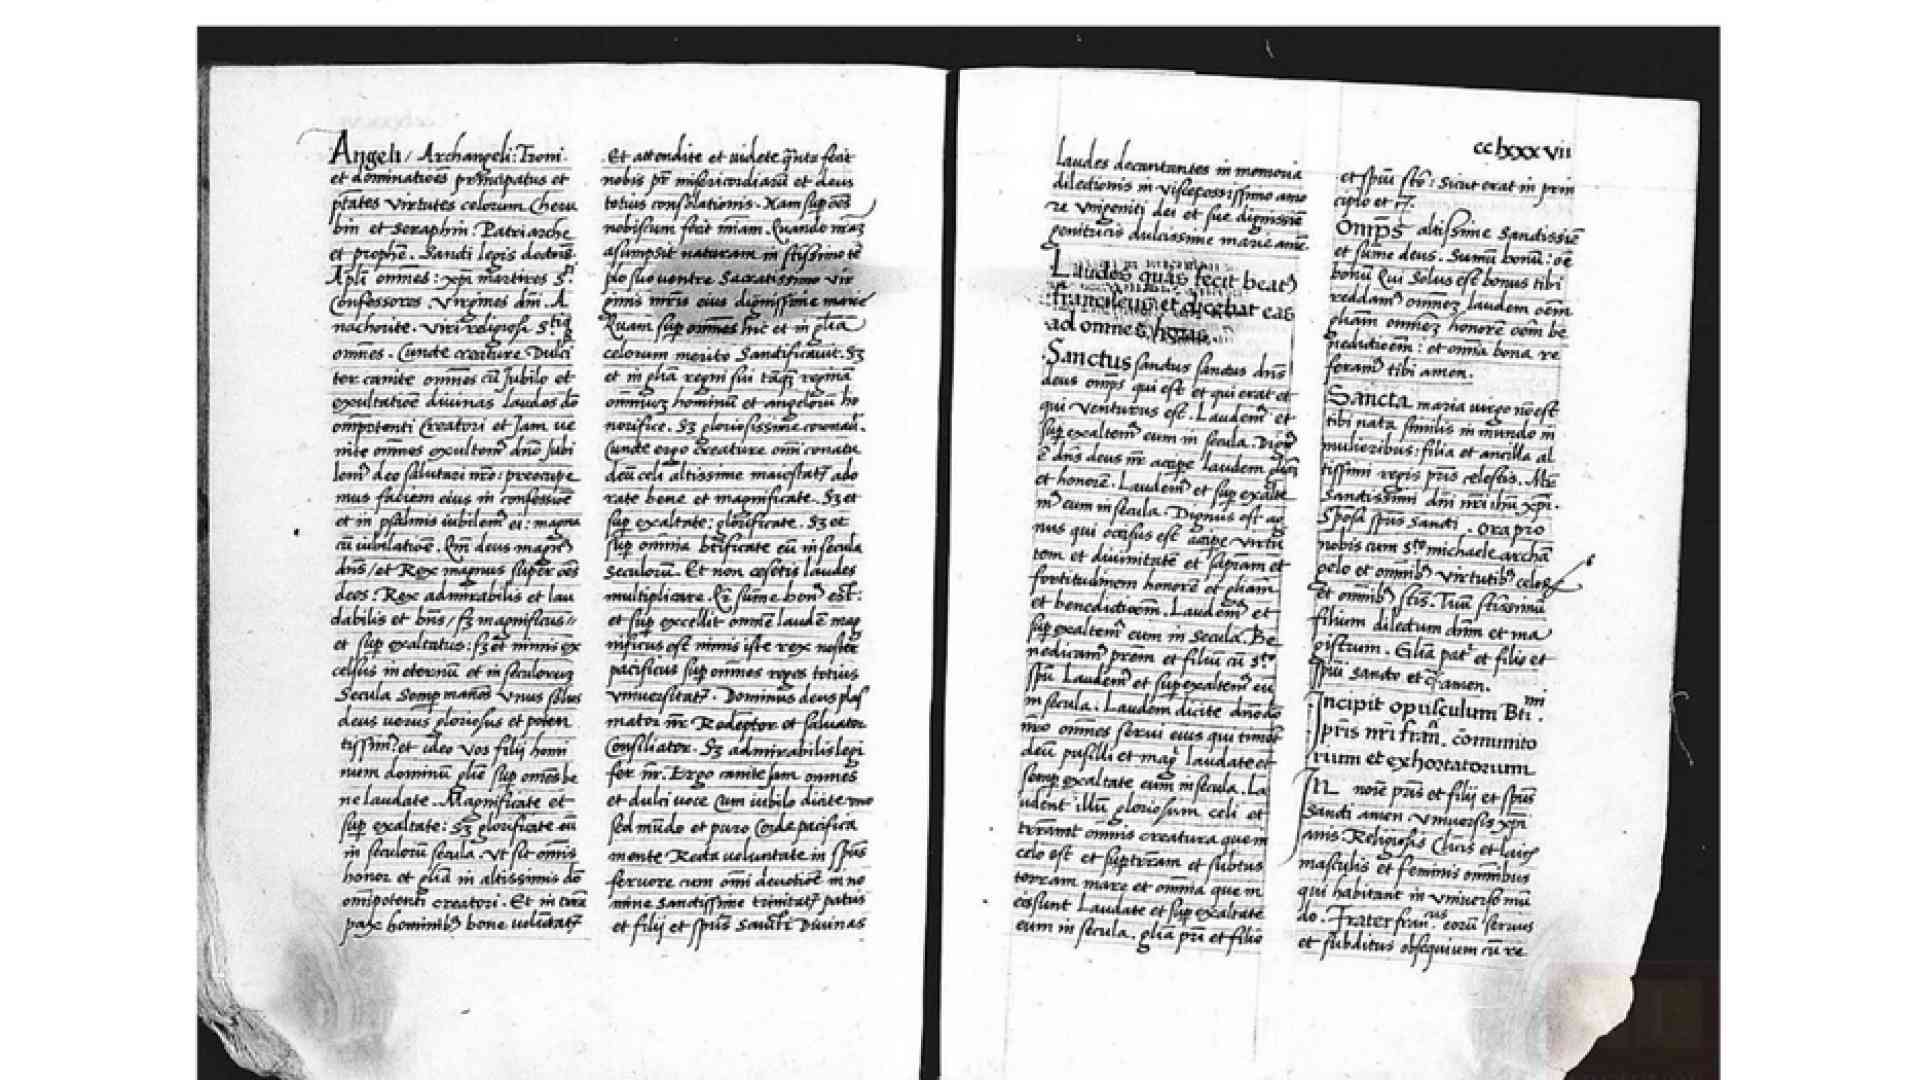 Angeli / Archangeli: Troni.
et dominatioēs prīncipatus et
ptātes virtutes celorum Cheru
bin et Seraphin: Patriarche
et prophē. Sancti legis doctoīs.
Apłi omnes: xp̄i martires Sti
Confessores. Virgines dn̄i. A
nachorite. viri religiosi
omnes. Cuncte creature Dulci
ter canite omnes cū Jubilo et
exultatioē divinas laudes dō
omp̄otenti Creatori et Jam ue
nite omnes exultemꝰ dn̄o Jubi
lemꝰ deo salutari nr̄o: preocupe
mus faciem eius in confessioē
et in psalmis iubilemꝰ ei: magna
cū iubilatioē. Qm̄ deus magnꝰ
dn̄s / et Rex magnus super oēs
deos: Rex admirabilis et lau
dabilis et bn̄s / sꝫ magnificus
et sup̄ exaltatus: sꝫ et nimis ex
celsus in eternū et in seculoruꝫ
Secula Semp̄ manēs Vnus solus
deus uerus gloriosus et poten
tissimꝰ et ideo vos filij homi
num dominū glīe sup̄ omēs be
ne laudate. Magnificate et
sup̄ exaltate: sꝫ glorificate eū
in seculorū secula. Vt sit omīs
honor et glīa in altissimis dō
omīpotenti creatori. Et in terra
pax hominibꝰ bone uolūtatꝭ
Et attendite et uidete q̄nta fecit
nobis pr̄ misericordiarū et deus
totius consolationis. Nam sup̄ oēs
nobiscum fecit mīam. Quando nr̄aꝫ
asumpsit naturam in sctissimo tē
plo suo uentre Sacratissimo vir
ginis mr̄is eius dignissime marie
Quam sup̄ omnes hic et in glīa
celorum merito Sanctificauit. Sꝫ
et in glīa regni sui tāqꝫ reginā
omniuꝫ hominū et angelorū ho
norifice. Sꝫ gloriosissime coronau.
Cuncte ergo creature omī conatu
deū celi altissime maiestatꝭ ado
rate bene et magnificate. Sꝫ et
sup̄ exaltate: glorificate. Sꝫ et
sup̄ omnia btīficate eū in secula
seculorū. Et non cesetis laudes
multiplicare. Qr̄ sūme bonꝰ est:
et sup̄ excellit omnē laudē mag
nificus est nimis iste rex noster
pacificus sup̄ omnes reges totius
vniuersitatꝭ. Dominus deus plas
mator nr̄. Redēptor et saluator
Consiliator. Sꝫ admirabilis legi
fer nr̄. Ergo canite Jam omnes
et dulci uoce Cum iubilo dicite
sed mūdo et puro Corde pacifica
mente Recta uoluntate in spūs
feruore cum omī deuotioē in no
mine Sanctissime trinitatꝭ patris
et filij et spūs Sancti Divinas
laudes decantantes in memoria
dilectionis in visceros­issimo amo
re vnigeniti dei et sue dignissiē
genitricis dulcissime marie amē
Laudes quas fecit beatꝰ
franciscus et dicebat eas
ad omnes horas.
Sanctus sanctus sanctus dn̄s
deus omp̄s qui est et qui erat et
qui venturus est. Laudemꝰ et
sup̄ exaltemꝰ eum in secula. Dignꝰ
ē dn̄s deus nr̄ accipe laudem
et honorē. Laudemꝰ et sup̄ exalte
mꝰ eum in secula. Dignus est ag
nus qui occisus est accipe virtu
tem et diuinitatē et sapiam et
fortitudinem honorē et glīam
et benedictioēm. Laudemꝰ et
sup̄ exaltemꝰ eum in secula. Be
nedicamꝰ prēm et filiū cū sto
spū Laudemꝰ et sup exaltemꝰ eū
in secula. Laudem dicite dn̄o dō
nr̄o omnes serui eius qui timet
deū pusilli et magi laudate et
semp̄ exaltate eum in secula. La
udent illū gloriosum celi et
terra et omnis creatura que in
celo est et sup terram et subtus
terram mare et omnia que in
eis sunt Laudate et sup exaltate
eum in secula. glīa pri et filio
cclxxxvii
et spūi stō: Sicut erat in prin
cipio et
Omp̄s altissime Sanctissiē
et sūme deus. Sumū bonū: oē
bonū Qui Solus est bonus tibi
reddamꝰ omneꝫ laudem oēm
glīam omneꝫ honorē oēm be
nedictioēm: et omīa bona re
feramꝰ tibi amen.
Sancta maria virgo nō est
tibi nata similis in mundo in
mulieribus: filia et ancilla al
tissimi regis pris celestis. Mr̄
Sanctissimi dn̄i nr̄i ihū xp̄i.
Sponsa spūs Sancti. Ora pro
nobis cum sto michaele archā
gelo et omnibꝰ virtutibꝰ celorꝫ
et omnibꝰ sctis. Tuū sctissimū
filium dilectum dn̄m et ma
gistrum. Glīa pat' et filio et
spūi sancto et amen.
Incipit opusculum Bti mi.
pris nr̄i fran̄. comunito
rium et exhortatorum
IN noīe pris et filij et spūs
Sancti amen vniuersis xp̄i
anis Religiosis Clicīs et laicis
masculis et feminis omnibus
qui habitant in vniuerso mū
do. Frater fran.cus eorū seruus
et subditus obsequium cū re